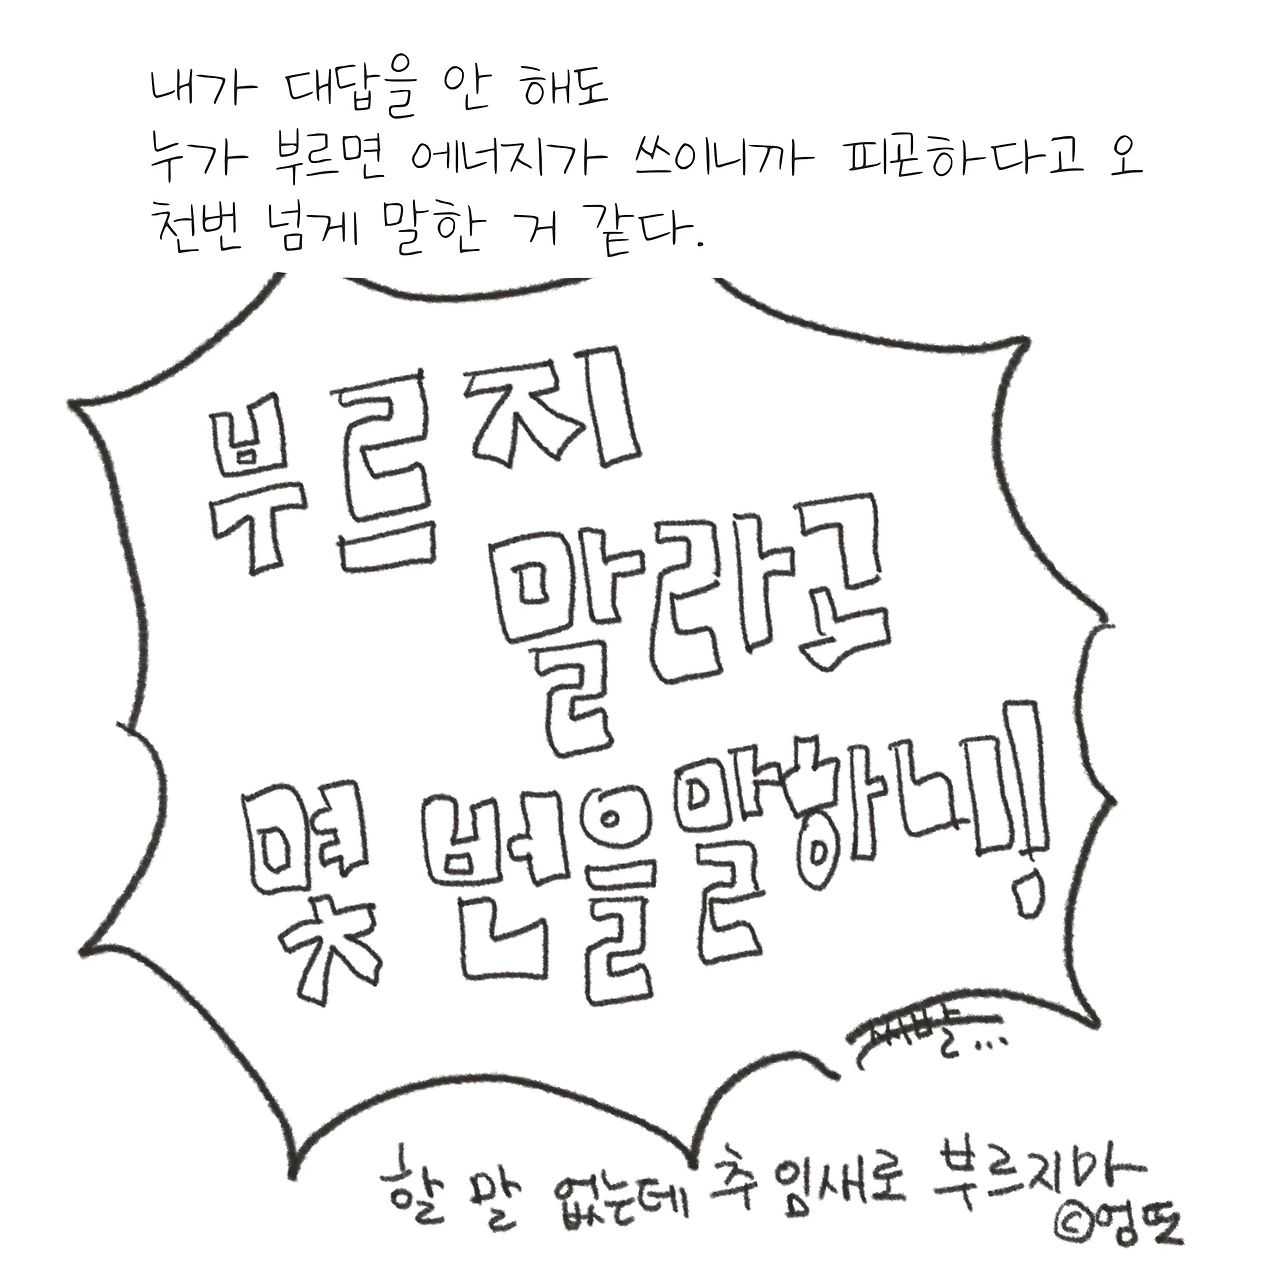 내가 대답을 안 해도
누가 부르면 에너지가 쓰이니까 피곤하다고 오
천번 넘게 말한 거 같다.
부르지
말라고
몇 번을 말하니!
제발...
할 말 없는데 추임새로 부르지마
©영또